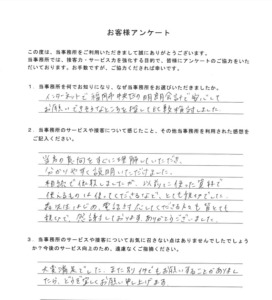 お客様アンケート
この度は、当事務所をご利用いただきまして誠にありがとうございます。
当事務所では、接客力・サービス力を強化する目的で、皆様にアンケートのご協力をいた
だいております。お手数ですが、ご協力くだされば幸いです。
1．当事務所を何でお知りになり、なぜ当事務所をお選びいただきましたか。
インターネットで 福岡市中央区の 明朗会計で安心して
お願いできそうなところを探して
2．当事務所のサービスや接客について感じたこと、その他当事務所を利用された感想を
ご記入ください。
当方の意向をすぐに理解していただき、
分かりやすく説明いただけました。
相続で依頼しましたが、以前に使った資料で
使えるものは使ってくださるなど、とても
電話対応してくださる方も皆とても
感謝しております。ありがとうございました。
3．当事務所のサービスや接客についてお気に召さない点はありませんでしたでしょう
か？今後のサービス向上のため、遠慮なくご指摘ください。
大変満足でした。また何かでもお願いすることがありまし
たら、どうぞよろしくお願い申し上げます。